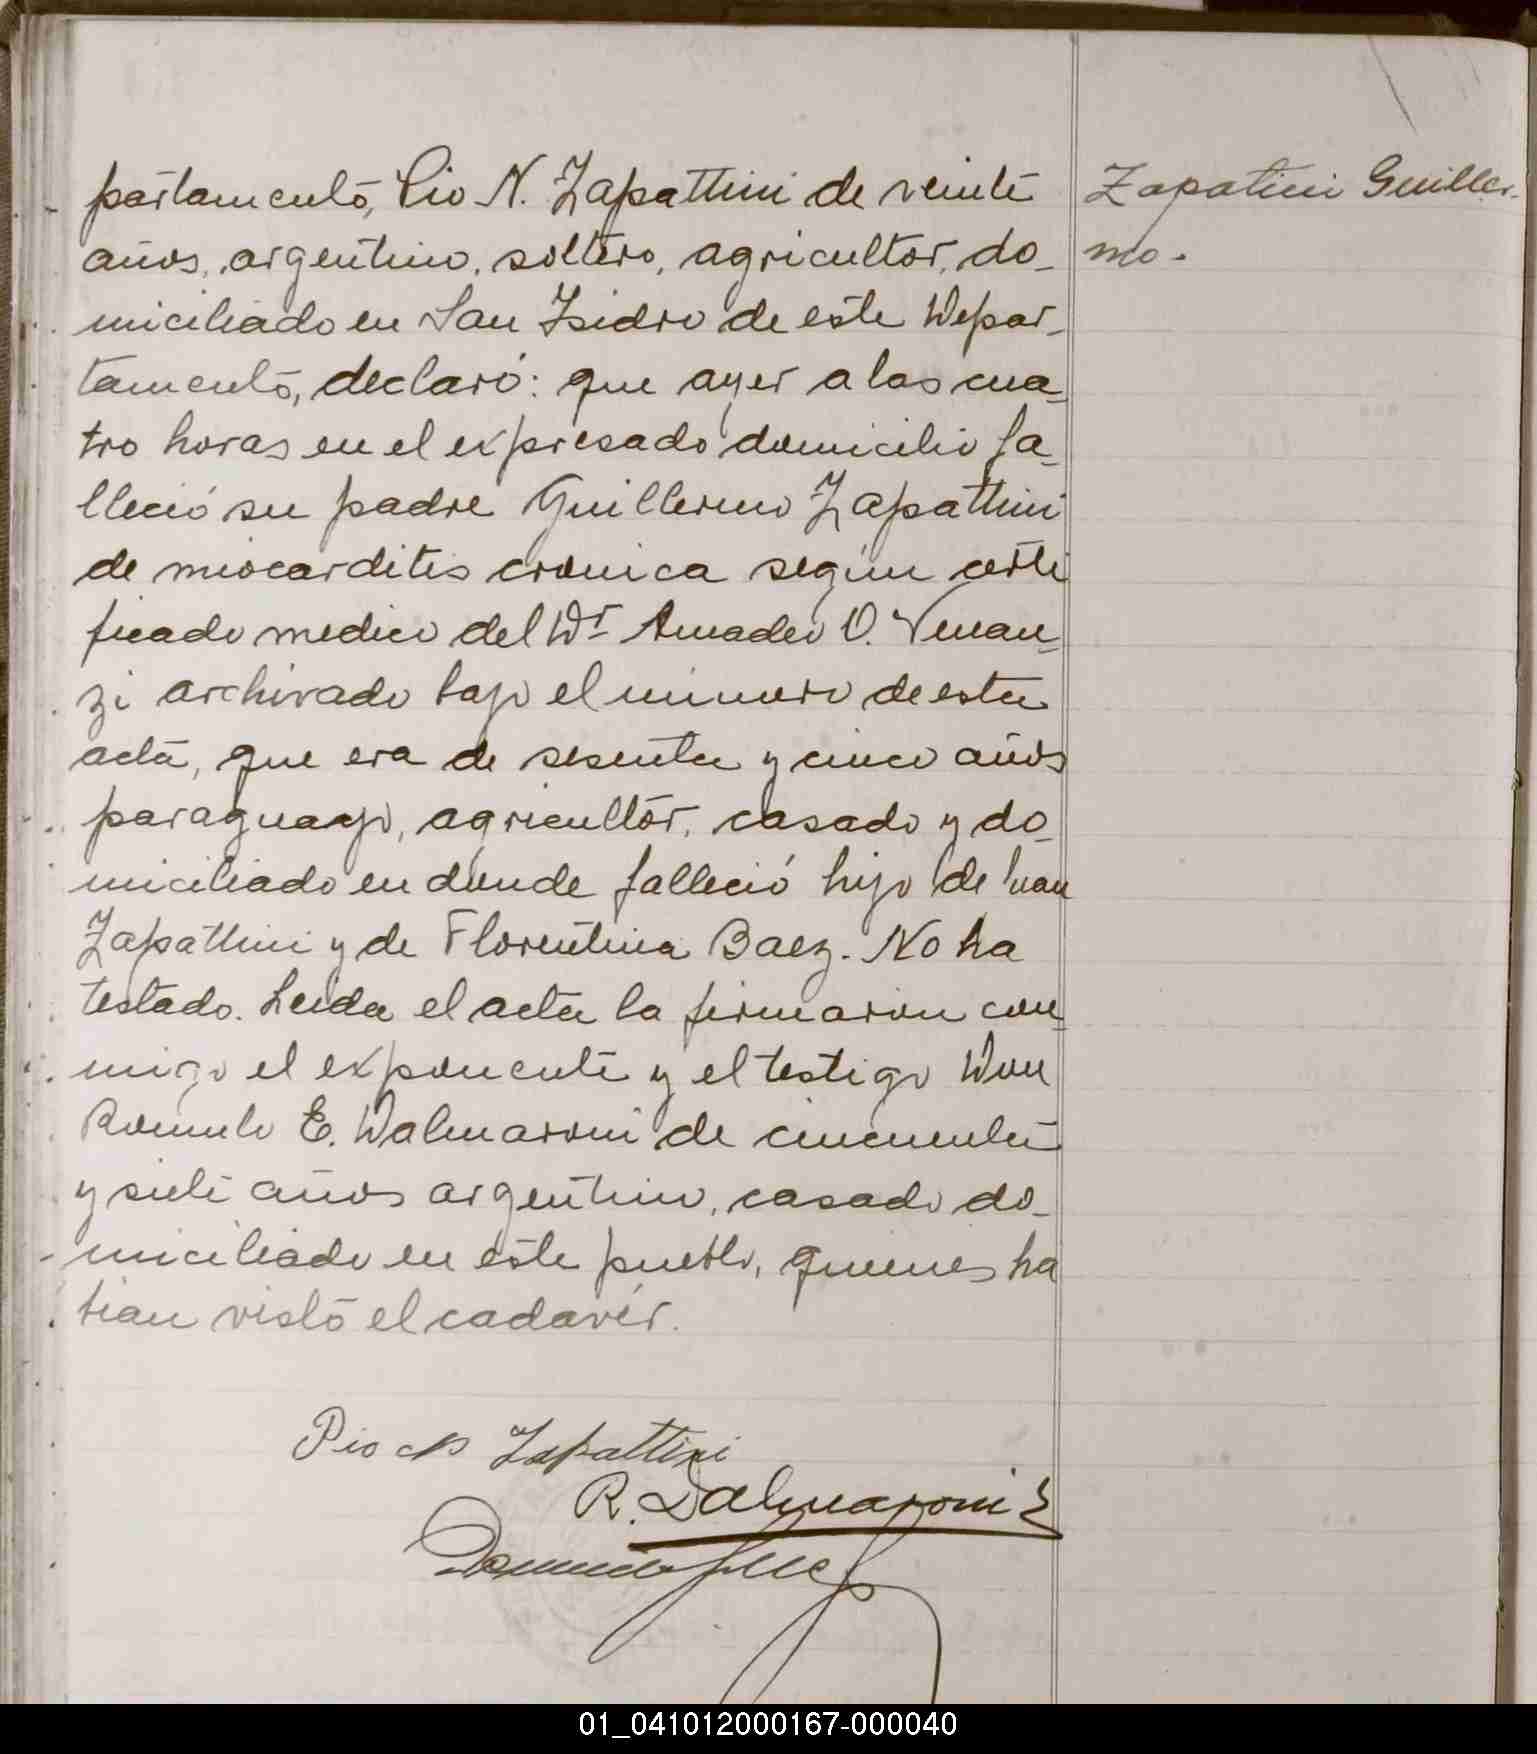 partamento, Pio N. Zapattini de veinte
años, argentino, soltero, agricultor, do-
miciliado en San Isidro de este Depar-
tamento, declaró: que ayer a las cua-
tro horas en el expresado domicilio fa-
lleció su padre Guillermo Zapattini
de miocarditis cronica según certi
ficado medico del Dr Amadeo O. Venan-
zi archivado bajo el numero de esta
acta, que era de sesenta y cinco años
paraguayo, agricultor, casado y do-
miciliado en donde falleció hijo de Juan
Zapattini y de Florentina Baez. No ha
testado. Leida el acta la firmaron con-
migo el exponente y el testigo Don
Romulo E. Dalmaroni de cincuenta
y siete años argentino, casado do-
miciliado en este pueblo, quienes ha
bian visto el cadaver.
Zapatini Guiller-
mo.
Pio N Zapattini
R. Dalmaroni
01_041012000167-000040